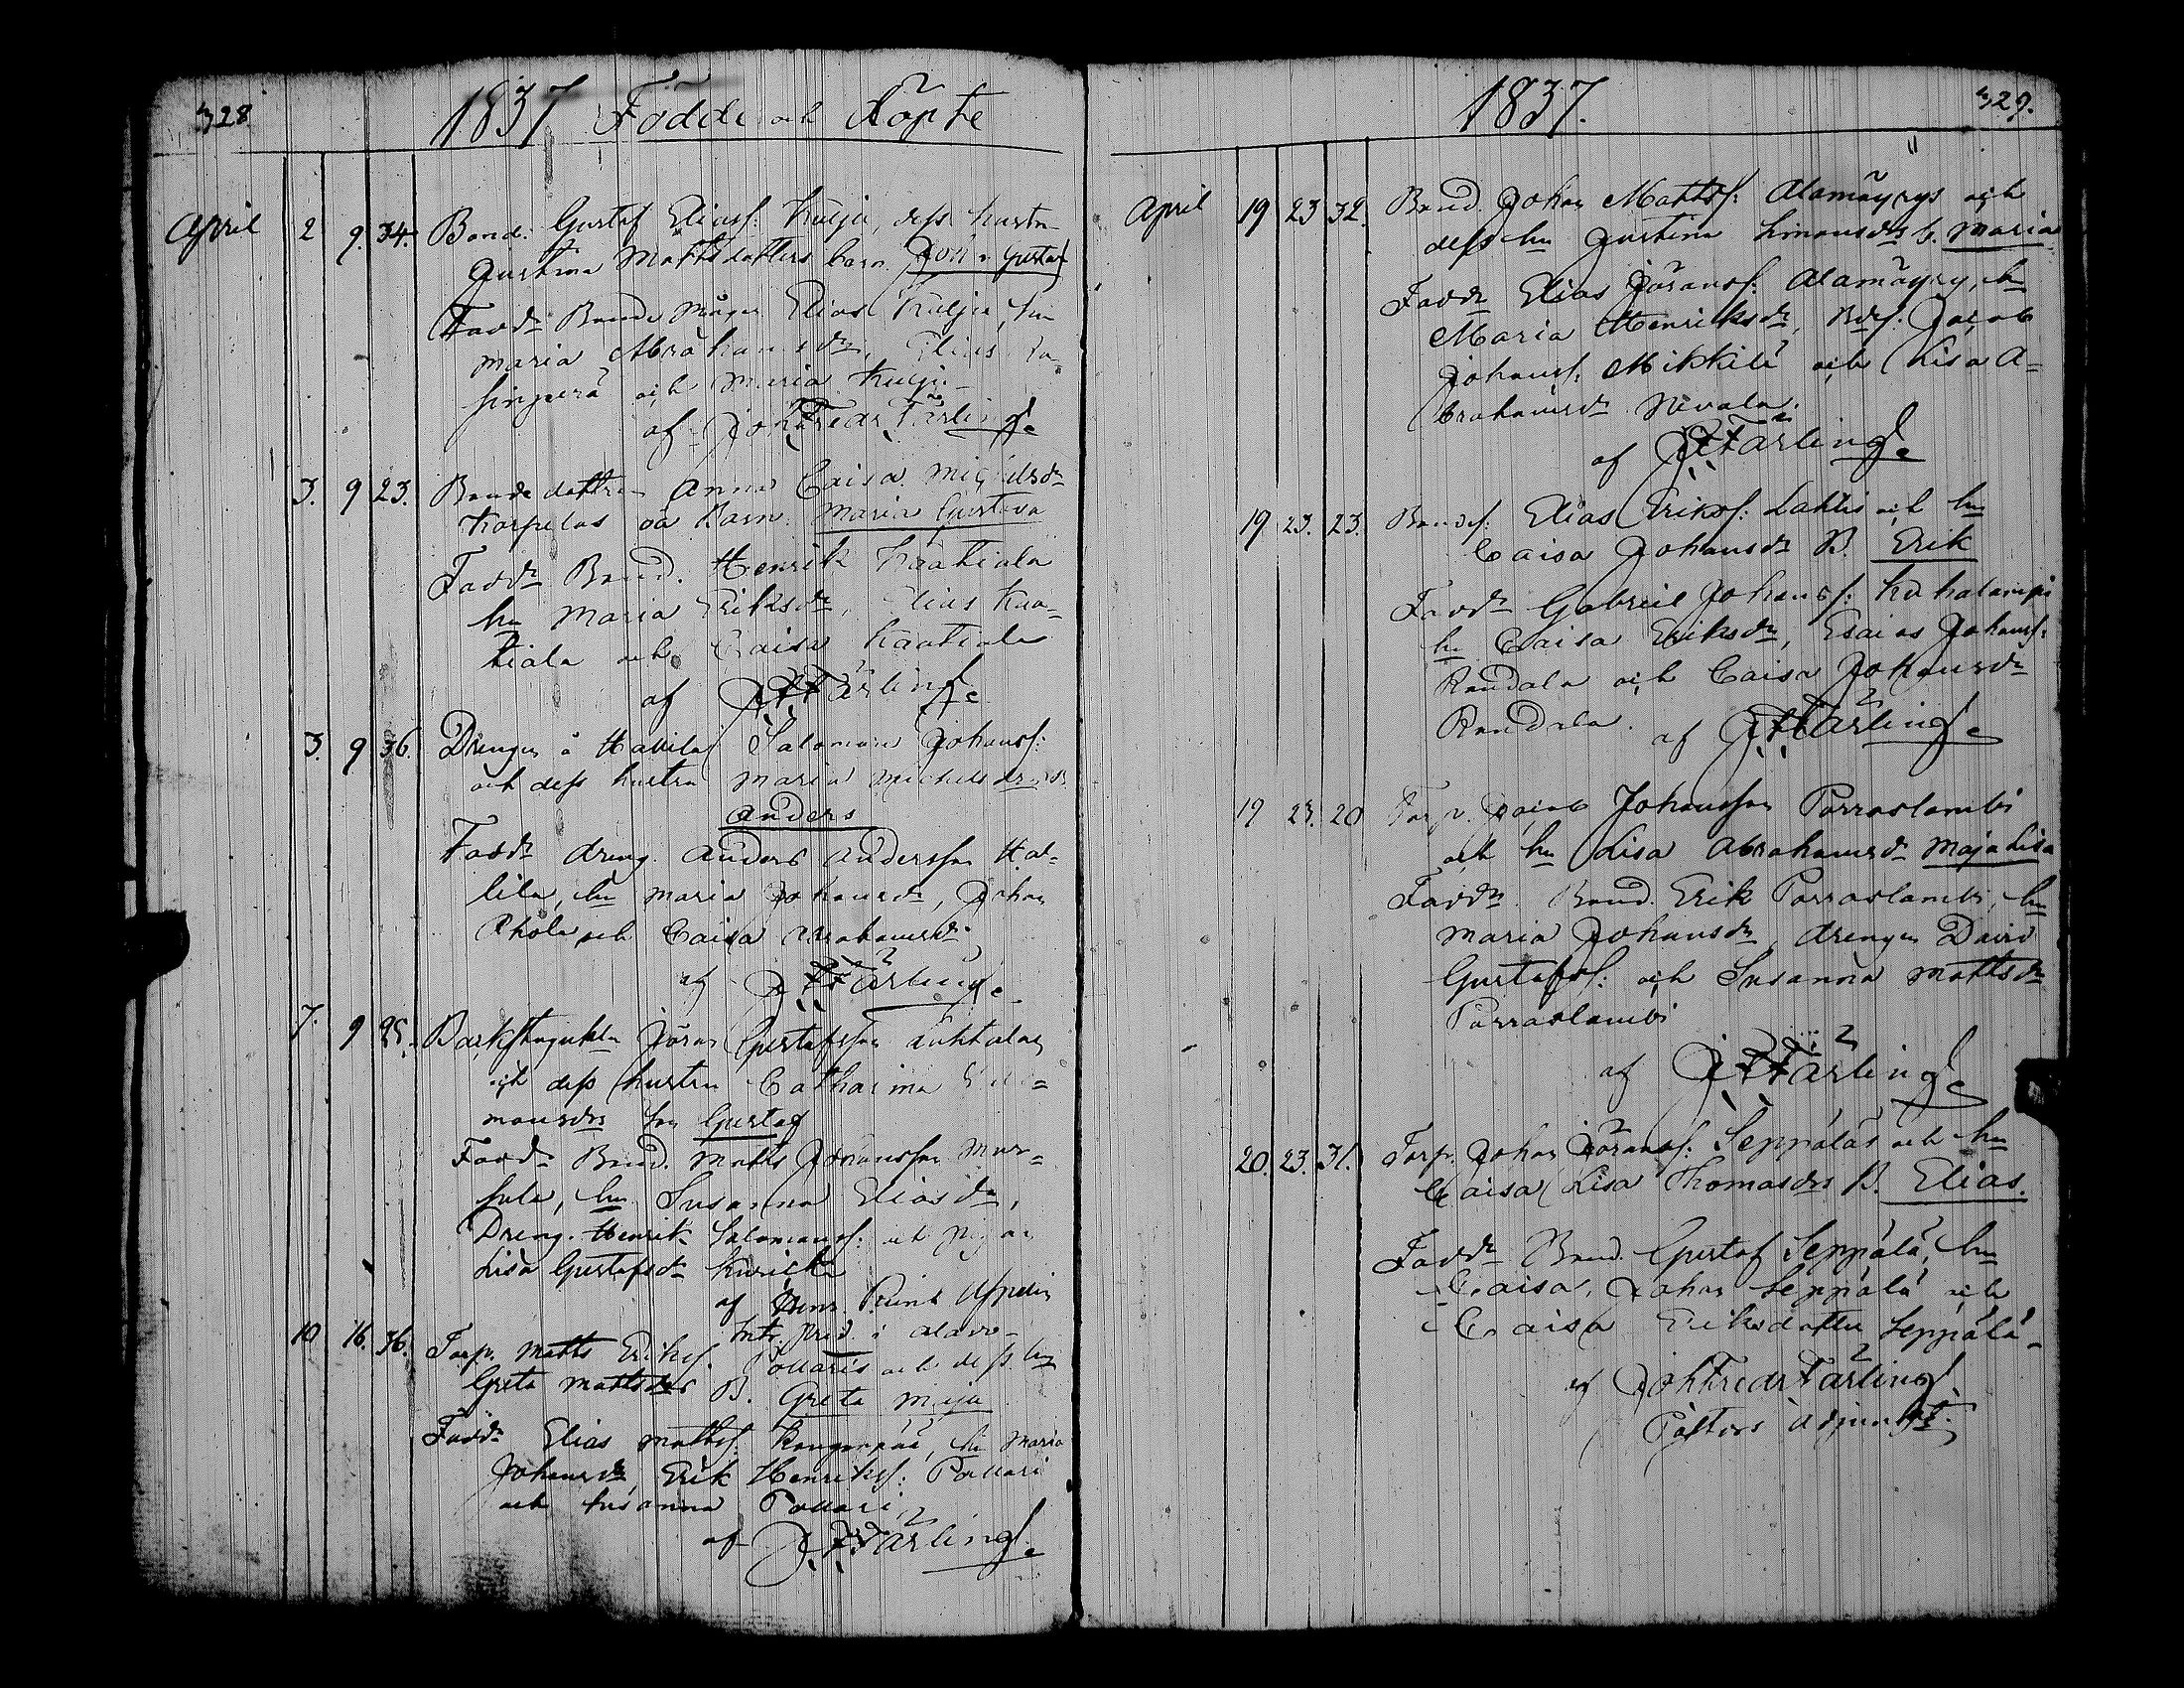 328 1837 Födde och döpte
April 2 9. 34. Bond. Gustaf Eliass: Kulju, dess hustru
Justina Mattsdotters barn Joh: Gustaf
Fadd: Bonde Måger Elias Kulju, hu
Maria Abrahamsdr, Elias
och Maria Kulju
af JohFredrFärling
3. 9 23. Bondedottren Anna Caisa Michelsdr
Karpelas oä Barn Maria Gustava
Faddr Bond. Henrik Kaatiala
hu Maria Eriksdr, Elias Kaa-
tiala och Caisa Kaatiala
af JFFärling
3. 9 36. Drengen å Hallila Salomon Johanss:
och dess hustru Maria Michelsdrs B.
Anders
Faddr dreng. Anders Andersson Hal-
lila, hu Maria Johansdr, Johan
och Caisa Abrahamsdr
af JFFärling
7. 9 25. Göran Gustafsson Luhtala
och dess hustru Catharina Salo-
monsdrs son Gustaf
Faddr Bond. Matts Johansson Mar-
hu Susanna Eliasdr,
Dreng. Henrik Salomonss: och pigan
Lisa Gustafsdr Kurikka
af Henr.
i Alavo
10 16. 36. Torp. Matts Erikss. Pollaris och dess hu
Greta Mattsdrs B. Greta Maja
Faddr Elias Mattss: Kangenpää, hu Maria
Johansdr, Erik Henrikss: Pollari
och Susanna Pollari
af JFFärling
1837. 329.
April 19 23 32. Bond. Johan Mattss: Alamäyrys och
dess hu Justina Simonsdrs b. Maria
Faddr Elias Göranss: Alamäyry, hu
Maria Henriksdr, Bds: Jacob
Johanss: Mikkilä och Lisa A=
brahamsdr Nivala.
af JFFärling
19 23. 23. Bondes: Elias Erikss: Lahtis och hu
Caisa Johansdr B. Erik
Faddr Gabriel Johanss: Kohalampi
hu Caisa Eriksdr, Esaias Johanss:
Randala och Caisa Johansdr
Randala. af JFFärling
19 23. 20 Torp. Jacob Johansson Porraslambi
och hu Lisa Abrahamsdr Maja Lisa
Faddr. Bond. Erik Porraslambi, hu
Maria Johansdr, drengen David
Gustafss: och Susanna Mattsdr
Porraslambi
af JFFärling
20. 23. 31. Torp. Johan Göranss: Seppäläs och hu
Caisa Lisa Thomasdrs B. Elias.
Faddr Bond. Gustaf Seppälä, hu
Caisa, Johan Seppälä och
Caisa Eriksdotter Seppälä
af JohFredrFärling
Pastors Adjunct.